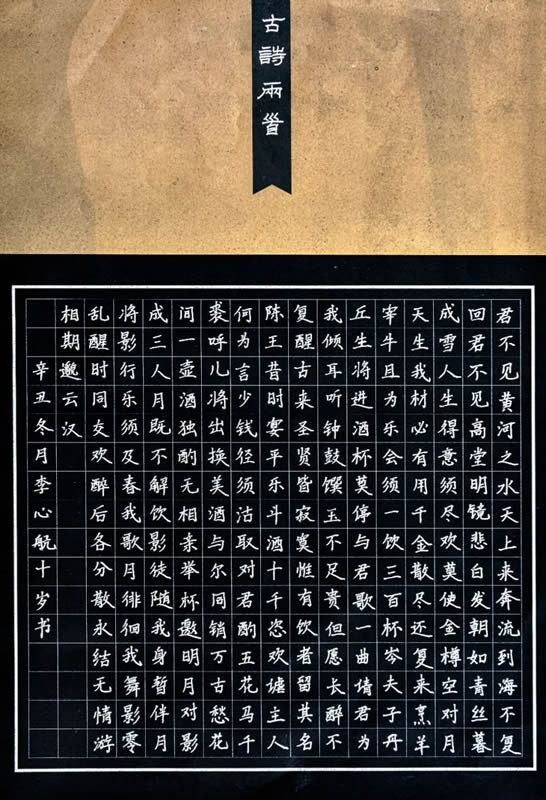 古詩兩首
君不见黄河之水天上来奔流到海不复
回君不见高堂明镜悲白发朝如青丝暮
成雪人生得意须尽欢莫使金樽空对月
天生我材必有用千金散尽还复来烹羊
宰牛且为乐会须一饮三百杯岑夫子丹
丘生将进酒杯莫停与君歌一曲请君为
我倾耳听钟鼓馔玉不足贵但愿长醉不
复醒古来圣贤皆寂寞惟有饮者留其名
陈王昔时宴平乐斗酒十千恣欢谑主人
何为言少钱径须沽取对君酌五花马千
裘呼儿将出换美酒与尔同销万古愁花
间一壶酒独酌无相亲举杯邀明月对影
成三人月既不解饮影徒随我身暂伴月
将影行乐须及春我歌月徘徊我舞影零
乱醒时同交欢醉后各分散永结无情游
相期邈云汉
辛丑冬月李心航十岁书